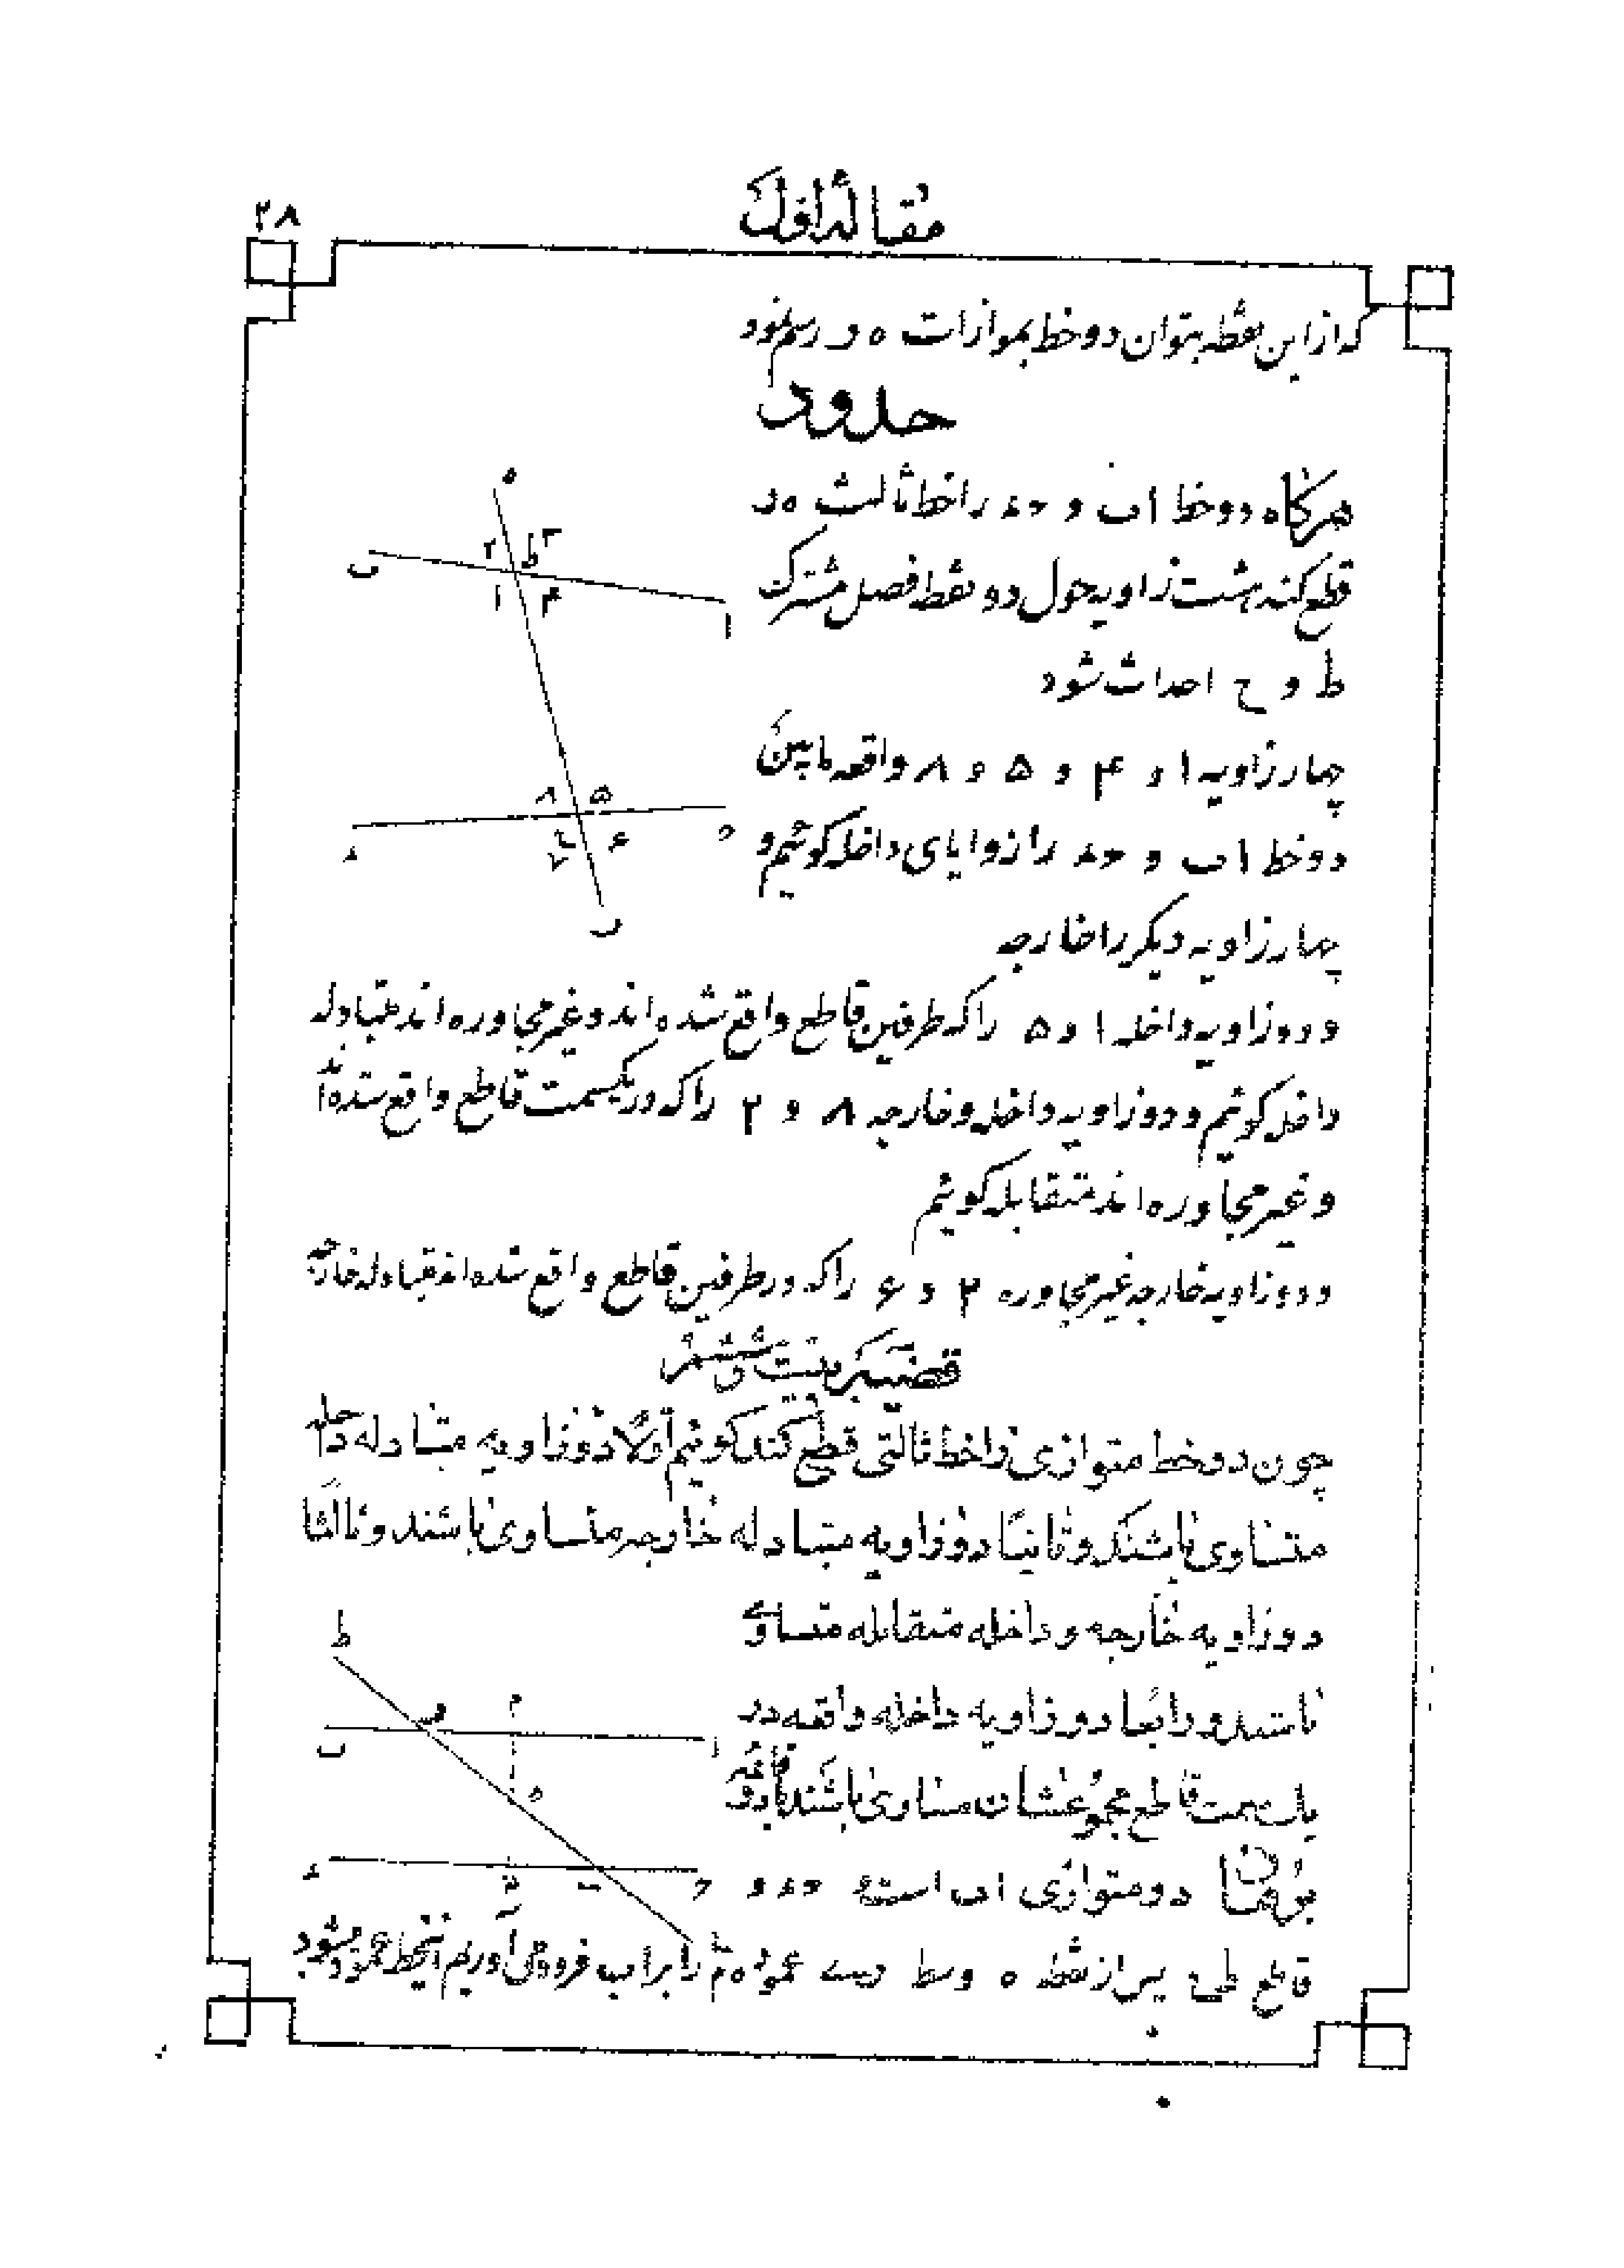 ۲۸
مقاله اول
که از این نقطه بتوان دو خط بموازات ه ر رسم نمود
حدود
هرگاه دو خط اب و حد را خط ثالث ه ر
قطع کند هشت زاویه حول دو نقطه فصل مشترک
ط و ح احداث شود
چهار زاویه ۱ و ۴ و ۵ و ۸ واقعه مابین
دو خط اب و حد را زوایای داخله گوئیم و
چهار زاویه دیگر را خارجه
و دو زاویه داخله ۱ و ۵ را که طرفین قاطع واقع شده اند و غیر مجاوره اند متبادله
داخله گوئیم و دو زاویه داخله و خارجه ۸ و ۲ را که در یکسمت قاطع واقع شده اند
و غیر مجاوره اند متقابله گوئیم
و دو زاویه خارجه غیر مجاوره ۲ و ۶ را که در طرفین قاطع واقع شده اند متبادله خارجه
قضیه بیست و ششم
چون دو خط متوازی را خط ثالثی قطع کند گوئیم اولا دو زاویه متبادله داخله
متساوی باشند و ثانیا دو زاویه متبادله خارجه متساوی باشند و ثالثا
دو زاویه خارجه و داخله متقابله متساوی
باشند و رابعا دو زاویه داخله واقعه در
یک سمت قاطع مجموعشان مساوی باشند با دو قائمه
برهان دو متوازی اب است و حد و
قاطع پس از نقطه ه وسط عمود ه م را بر اب فرود می آوریم اینخط عمود میشود
ه
ب
ط
۲
۳
۱
۴
ا
۸
۵
۷
۶
د
ح
ر
ط
م
ب
ا
ه
د
ح